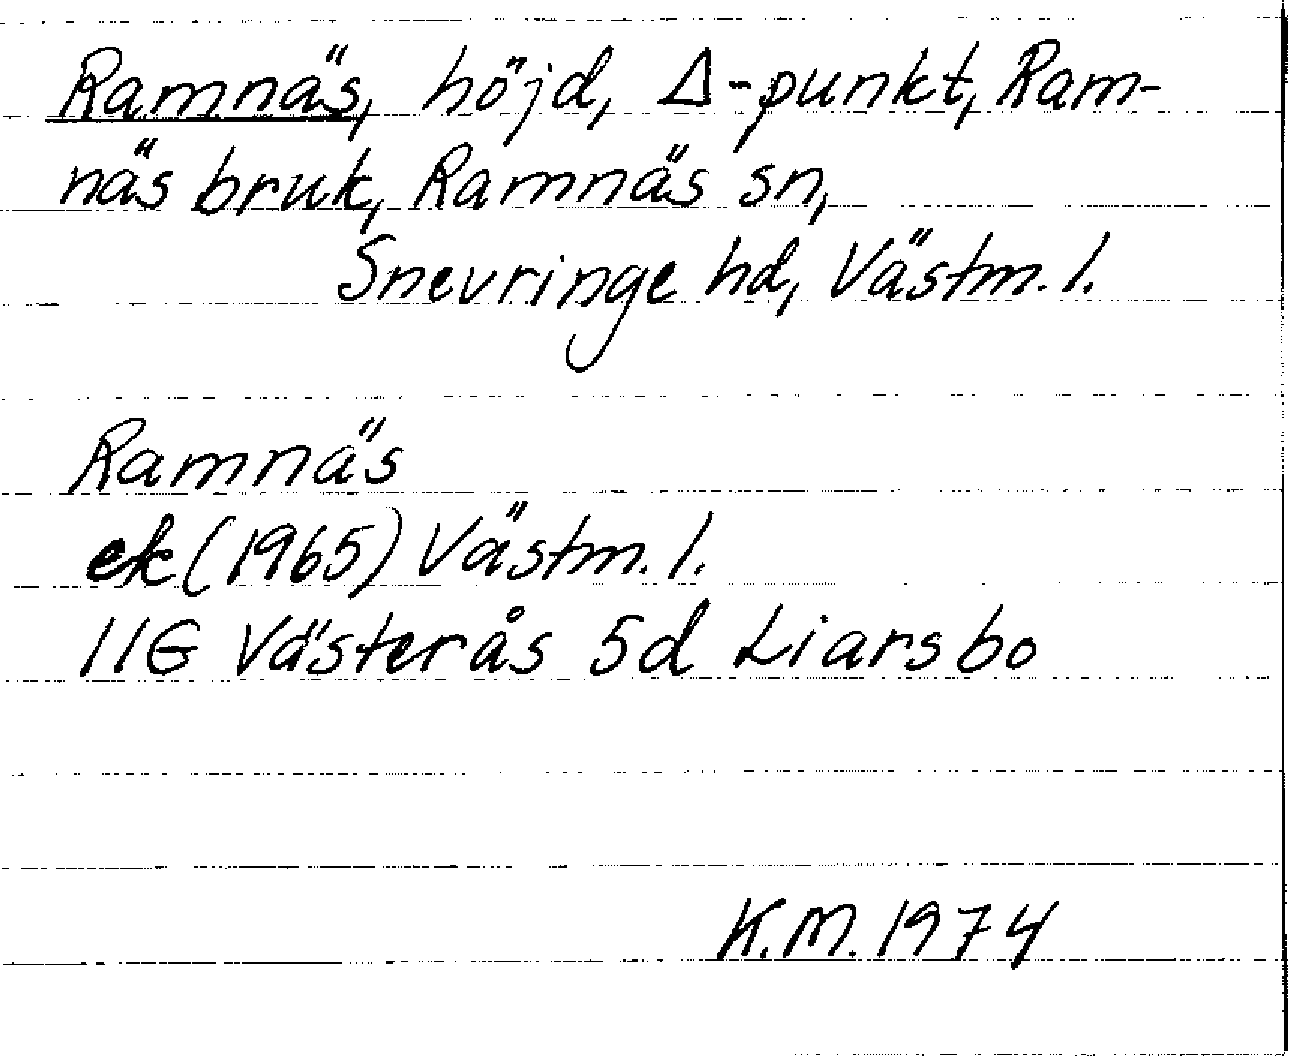 Ramnäs, höjd, Δ-punkt, Ram-
näs bruk, Ramnäs sn,
Snevringe hd, Västm. l.
Ramnäs
ek (1965) Västm. l.
11G Västerås 5d Liarsbo
K.M. 1974